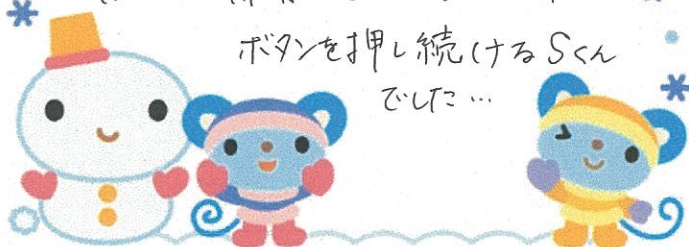 ボタンを押し続けるSくん
でした…